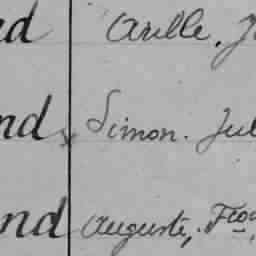 ed Arille, J
nd Simon. Jul
nd Auguste, Fco